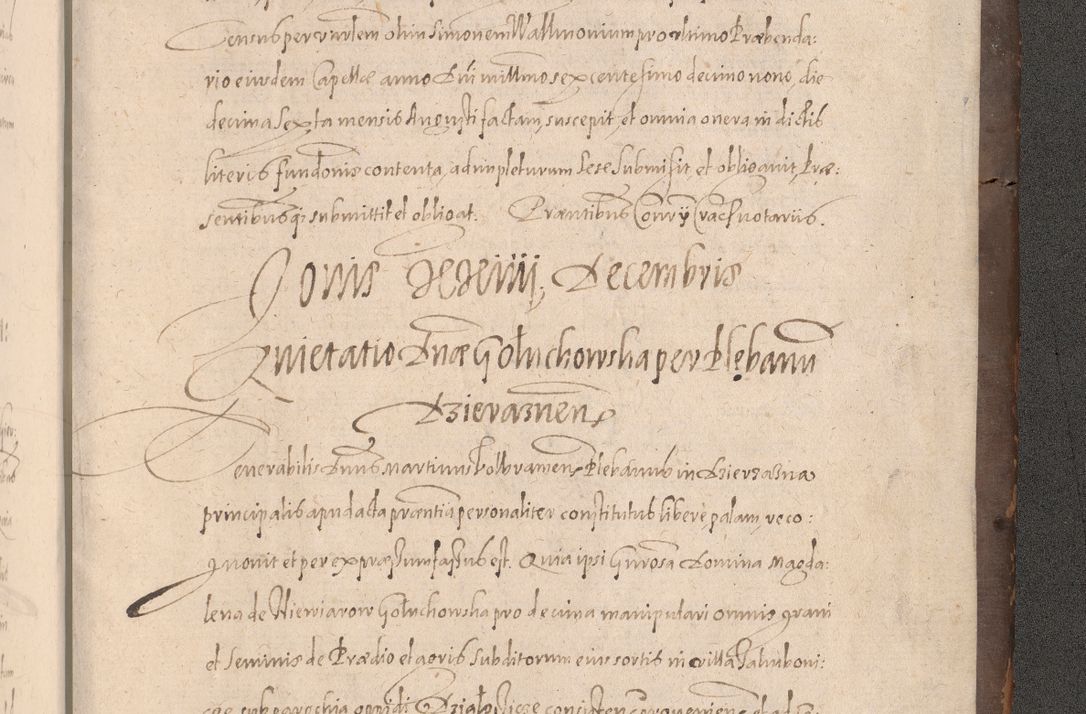 Census per vendem olim Simonem Wallinonium pro ultimo Præbenda:
rio eiusdem Capellæ anno Dni millmo sexcentesimo decimo nono, die
decima Sexta mensis Augusti factam, suscepit, et omnia onera in dictis
literis fundonis contenta, adimpleturum sese submisit et obligavit, Præ:
sentibusq; submittit et obligat. Præntibus Conrÿ Crac: notariis.
Jovis Decembris
Quietatio Dnæ Gołuchowska per Plebanū
Dzieraznen
Venerabilis Dnus Martinus Wolbramen Plebanus in Dzierazna
principalis apud acta præntia personaliter constitutus libere palam, reco:
gnovit et per expræssum fassus est. Quia ipsi Gnrosa Domina Magda:
lena de Niewiarow Gołuchowska pro decima manipulari omnis grani
et seminis de Prædio et agris subditorum eius sortis in villa
cæ sub parochia oppidi Działoszicze consisten